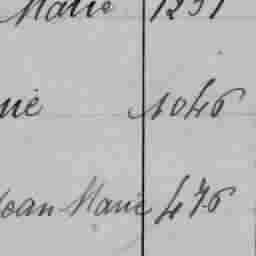 Marie 1231
ué 1046
Jean Marie 476